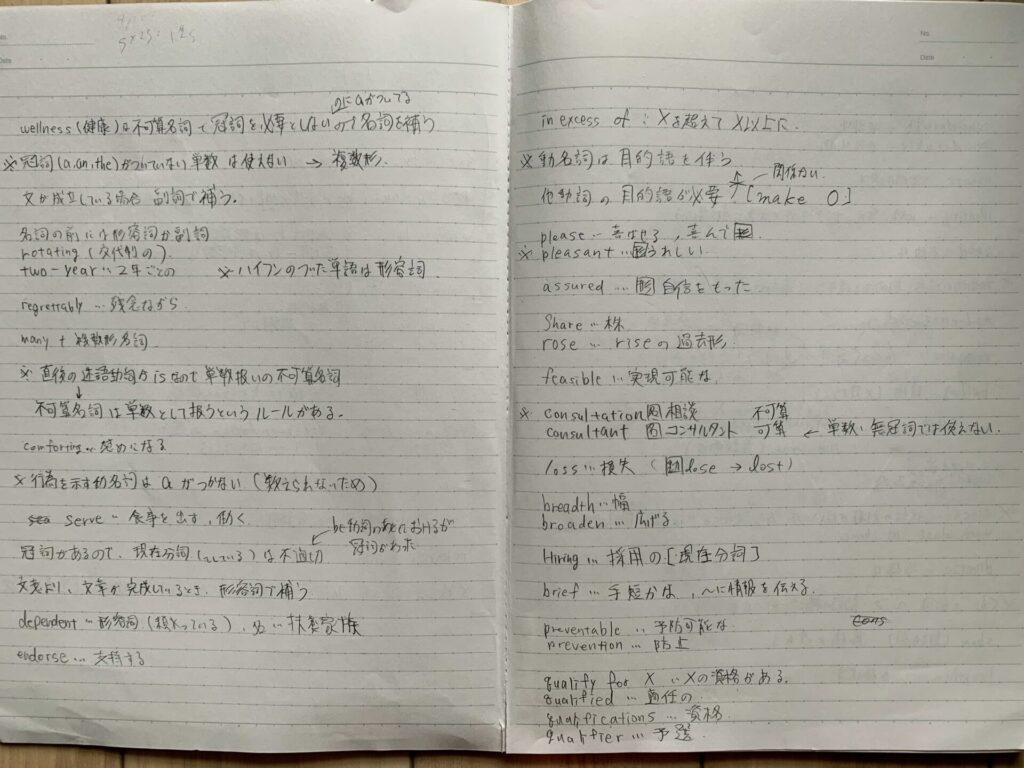 No.
Date
5×25=125
にaがついてる
wellness(健康)は不可算名詞で冠詞を必要としないので名詞を補う
※冠詞(a,an,the)がついていない単数は使えない → 複数形.
文が成立している場合 副詞で補う。
名詞の前には形容詞か副詞
rotating (交代制の)
two-year…2年ごとの ※ハイフンのついた単語は形容詞.
regrettably … 残念ながら.
many + 複数形名詞
※直後の述語動詞がisなので単数扱いの不可算名詞
↓
不可算名詞は単数として扱うというルールがある.
comforting … 慰めになる
※行為を示す動名詞はaがつかない(数えられないため)
serve … 食事を出す, 働く
be動詞のあとにおけるが
冠詞があるので、現在分詞(〜している)は不適切
冠詞があっ
文章が完成しているとき、形容詞で補う
dependent … 形容詞(頼っている), 名…扶養家族
endorse … 支持する
No.
Date
in excess of : Xを超えて X以上に.
※動名詞は目的語を伴う
関係ない.
他動詞の目的語が必要 [make O]
please … 喜ばせる, 喜んで
※pleasant … 形うれしい
assured … 形 自信をもった
Share … 株
rose … riseの過去形.
feasible … 実現可能な
※consultation 名相談 不可算
consultant 名コンサルタント 可算 ← 単数・無冠詞では使えない.
loss … 損失 (動lose → lost)
breadth … 幅
broaden … 広げる
Hiring … 採用の[現在分詞]
brief … 手短かな, 〜に情報を伝える.
preventable … 予防可能な
prevention … 防止
qualify for X … Xの資格がある.
qualified … 適任の
qualifications … 資格.
qualifier … 予選